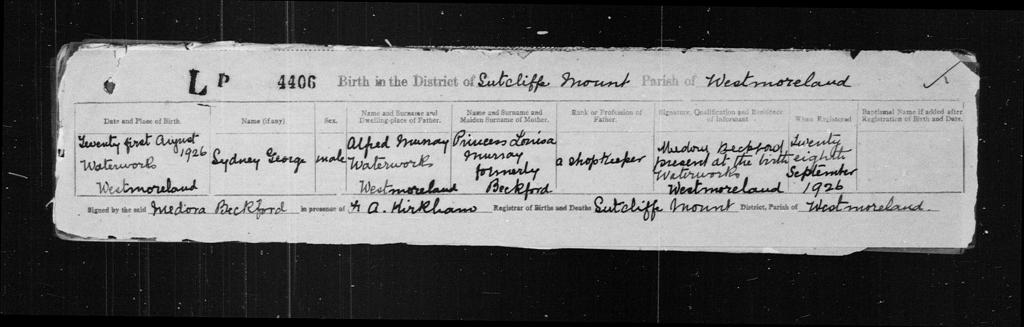 L P 4406 Birth in the District of Sutcliffe Mount Parish of Westmoreland
Date and Place of Birth. Name (if any) Sex. Name and Surname and Dwelling-place of Father. Name and Surname and Maiden Surname of Mother. Rank or Profession of Father. Signature, Qualification and Residence of Informant When Registered Baptismal Name if added after Registration of Birth and Date.
Twenty first August
1926
Waterworks
Westmoreland
Sydney George
male
Alfred Murray
Waterworks
Westmoreland
Princess Louisa
Murray
formerly
Beckford
a shopkeeper
Medora Beckford
present at the birth
Waterworks
Westmoreland
Twenty
eighth
September
1926
Signed by the said Medora Beckford in presence of A. Kirkham Registrar of Births and Deaths Sutcliffe Mount District, Parish of Westmoreland.